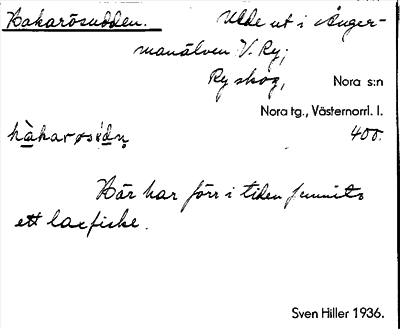 Hakarösudden. Udde ut i Ånger-
manälven V. Ry;
Ry skog, Nora s:n
Nora tg., Västernorrl. l.
400.
Här har förr i tiden funnits
ett laxfiske.
Sven Hiller 1936.